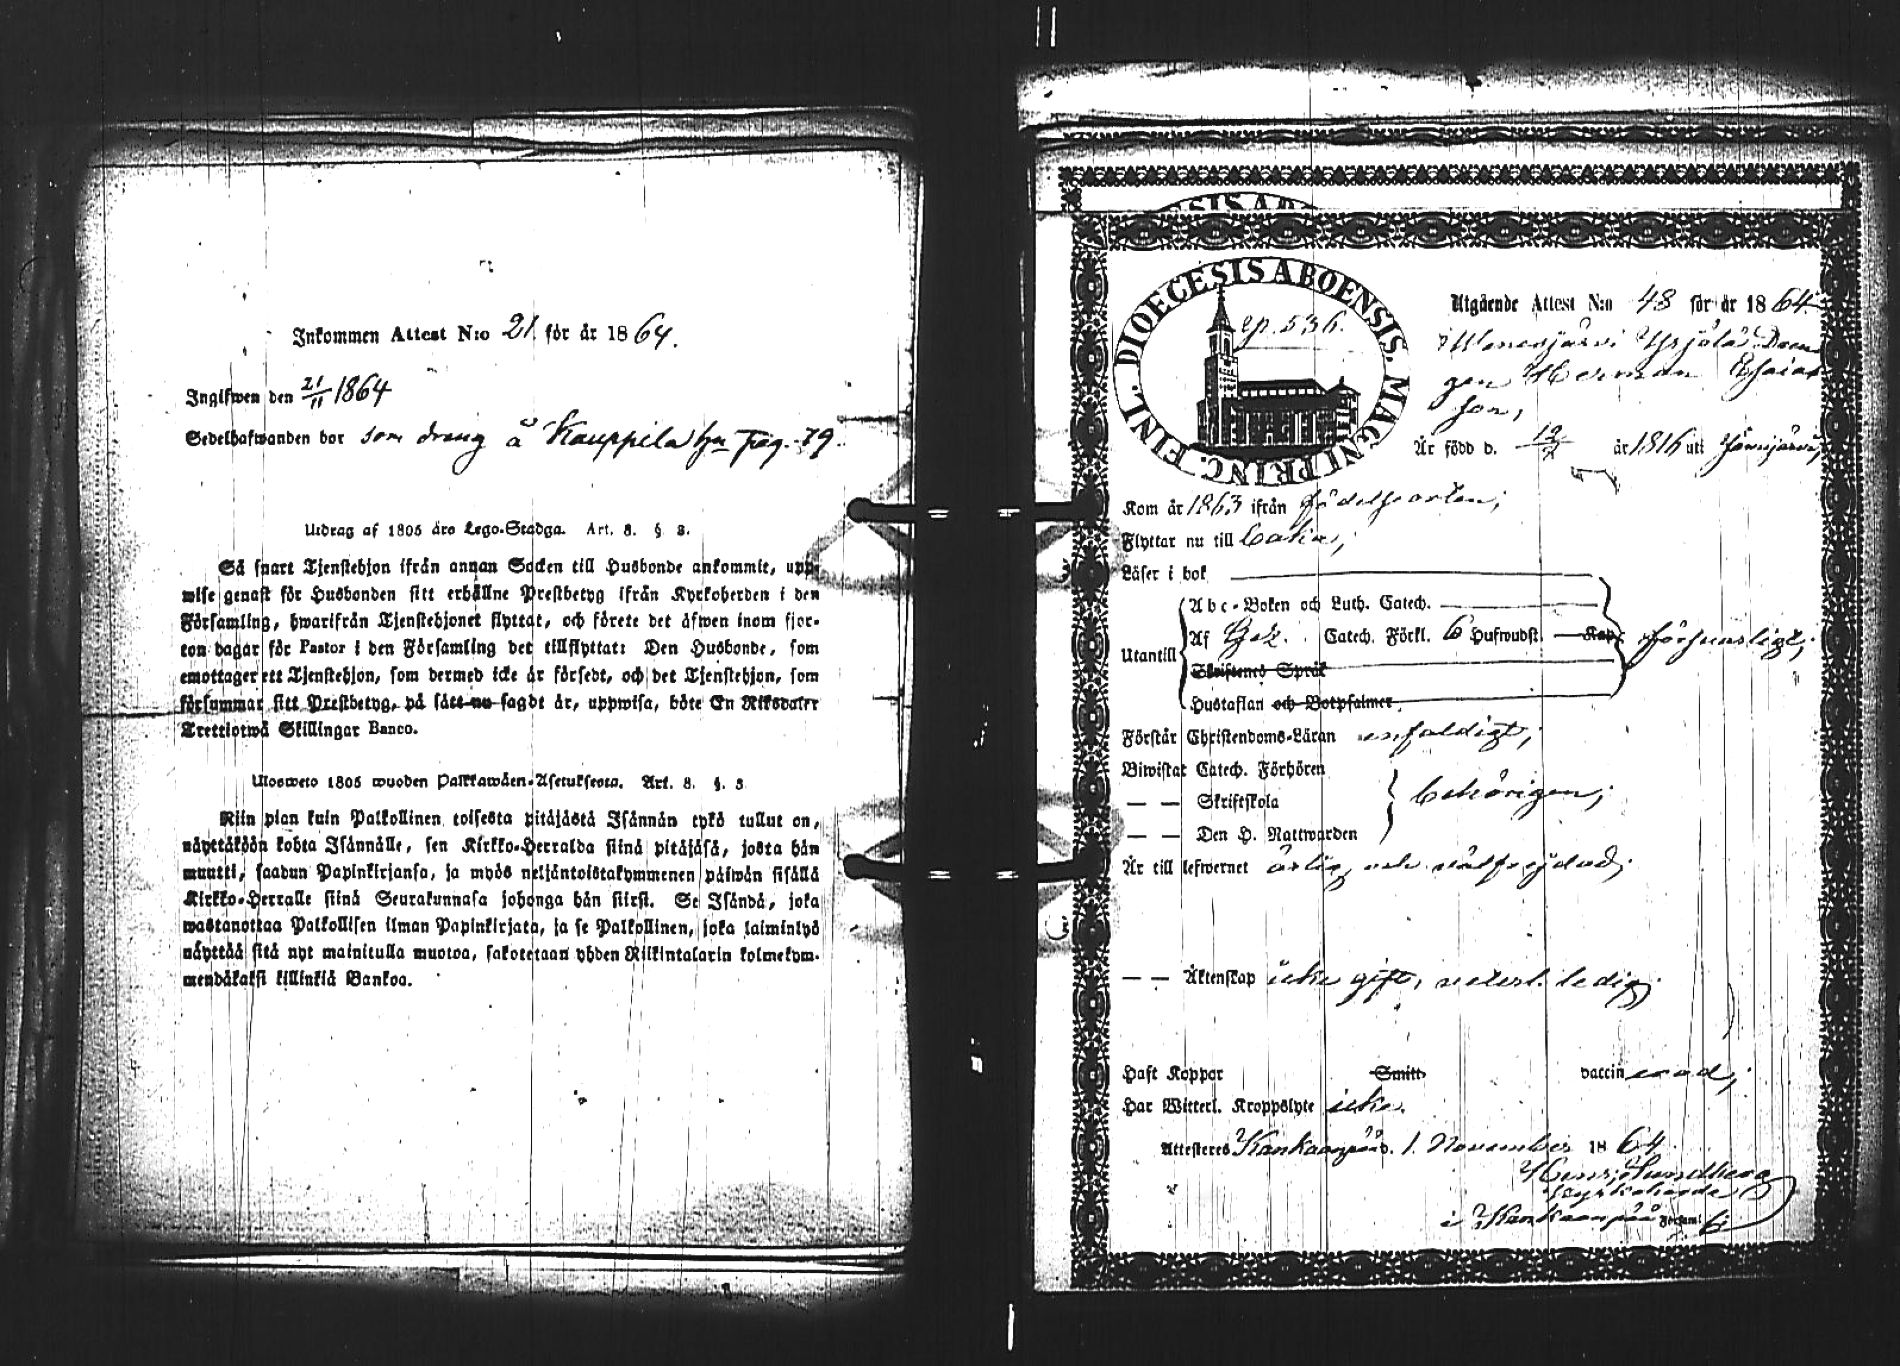 Inkommen Attest N:o 21. för år 1864.
Ingifwen den 21/11 1864
Sedelhafwanden bor som dreng å Kauppila hn pag. 79.
Utdrag af 1805 års Lego-Stadga. Art. 8. § 3.
Så snart Tjenstehjon ifrån annan Socken till Husbonde ankommit, upp-
wise genast för Husbonden sitt erhållne Prestbetyg ifrån Kyrkoherden i den
Församling, hwarifrån Tjenstehjonet flyttat, och förete det äfwen inom fjor-
ton dagar för Pastor i den Församling det tillflyttat: Den Husbonde, som
emottager ett Tjenstehjon, som dermed icke är försedt, och det Tjenstehjon, som
försummar sitt Prestbetyg, på sätt nu sagdt är, uppwisa, böte En Riksdaler
Trettiotwå Skillingar Banco.
Ulosweto 1805 wuoden Palkkawäen-Asetuksesta. Art. 8. §. 3
Niin pian kuin Palkollinen toisesta pitäjästä Isännän tykö tullut on,
näyttäköön kohta Isännälle, sen Kirkko-Herralda siinä pitäjäsä, josta hän
muutti, saadun Papinkirjansa, ja myös neljäntoistakymmenen päiwän sisällä
Kirkko-Herralle siinä Seurakunnasa johonga hän siirsi. Se Isändä, joka
wastanottaa Palkollisen ilman Papinkirjata, ja se Palkollinen, joka laiminlyö
näyttää sitä nyt mainitulla muotoa, sakotetaan yhden Riikintalarin kolmekym-
mendäkaksi killinkiä Bankoa.
DIOECESIS ABOENSIS. MAGNI PRINC. FINL.
ep. 536.
Utgående Attest N:o 48 för år 1864.
Yrjölä Dren
gen Herman Esaias
son,
Är född d. 12/ år 1816 uti Jämijärvi,
Kom år 1863 ifrån födelseorten;
Flyttar nu till
Läser i bok
Abc-Boken och Luth. Catech.
Utantill Af Gez. Catech. Förkl. 6 Hufwudst. Kap. försvarligt;
Skriftenes Språk
Hustaflan och Botpsalmer.
Förstår Christendoms-Läran enfaldigt;
Biwistat Catech. Förhören
— — Skriftskola behörigen;
— — Den H. Nattwarden
Är till lefwernet ärlig och välfrejdad;
— — Äktenskap icke gift, ledig;
Haft Koppor Smitt vaccinerad;
Har Witterl. Kroppslyte icke.
Attesteres Kankaanpää d. 1 November 1864
Sundberg
Kyrkoherde
i Kankaanpää Församl.